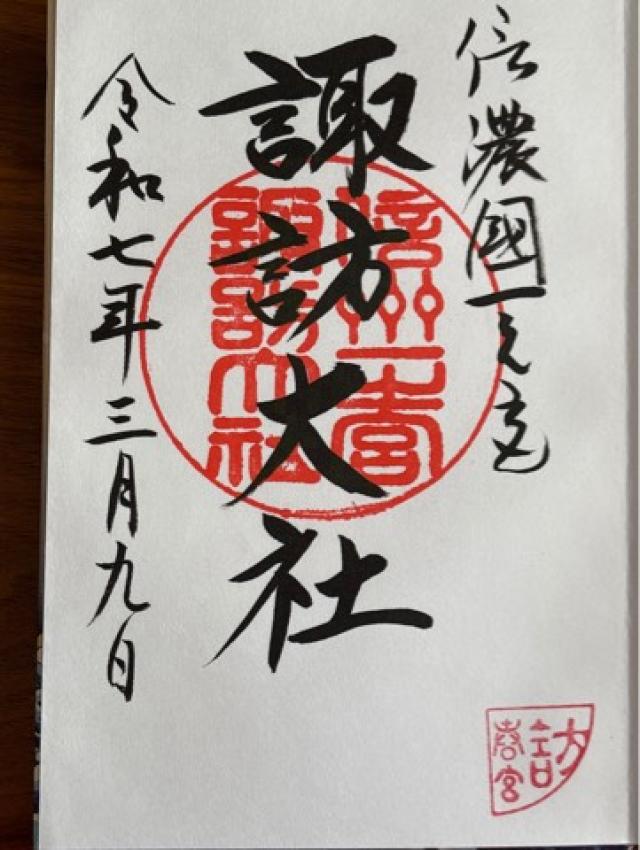 信濃國一之宮
諏訪大社
令和七年三月九日
信州一宮
諏訪大社
春宮